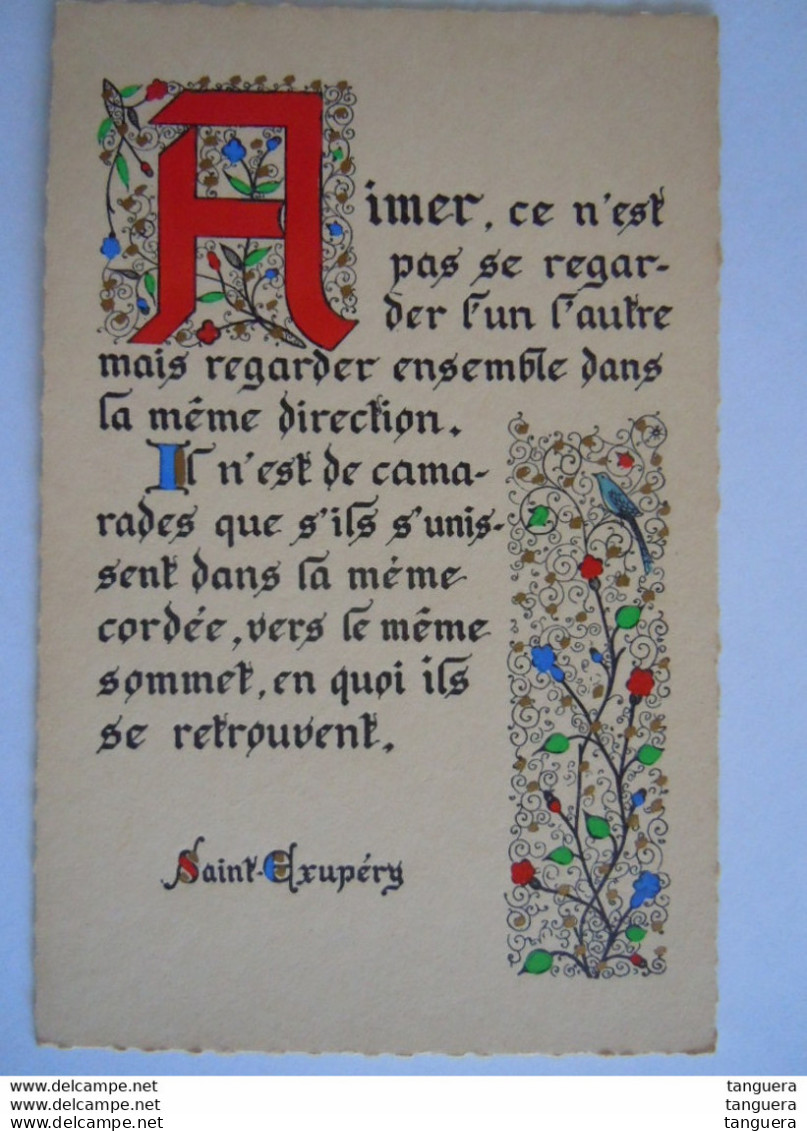 Aimer, ce n'est
pas se regar-
der l'un l'autre
mais regarder ensemble dans
la même direction.
Il n'est de cama-
rades que s'ils s'unis-
sent dans la même
cordée, vers le même
sommet, en quoi ils
se retrouvent.
Saint-Exupéry
www.delcampe.net tanguera
www.delcampe.net tanguera
www.delcampe.net tanguera